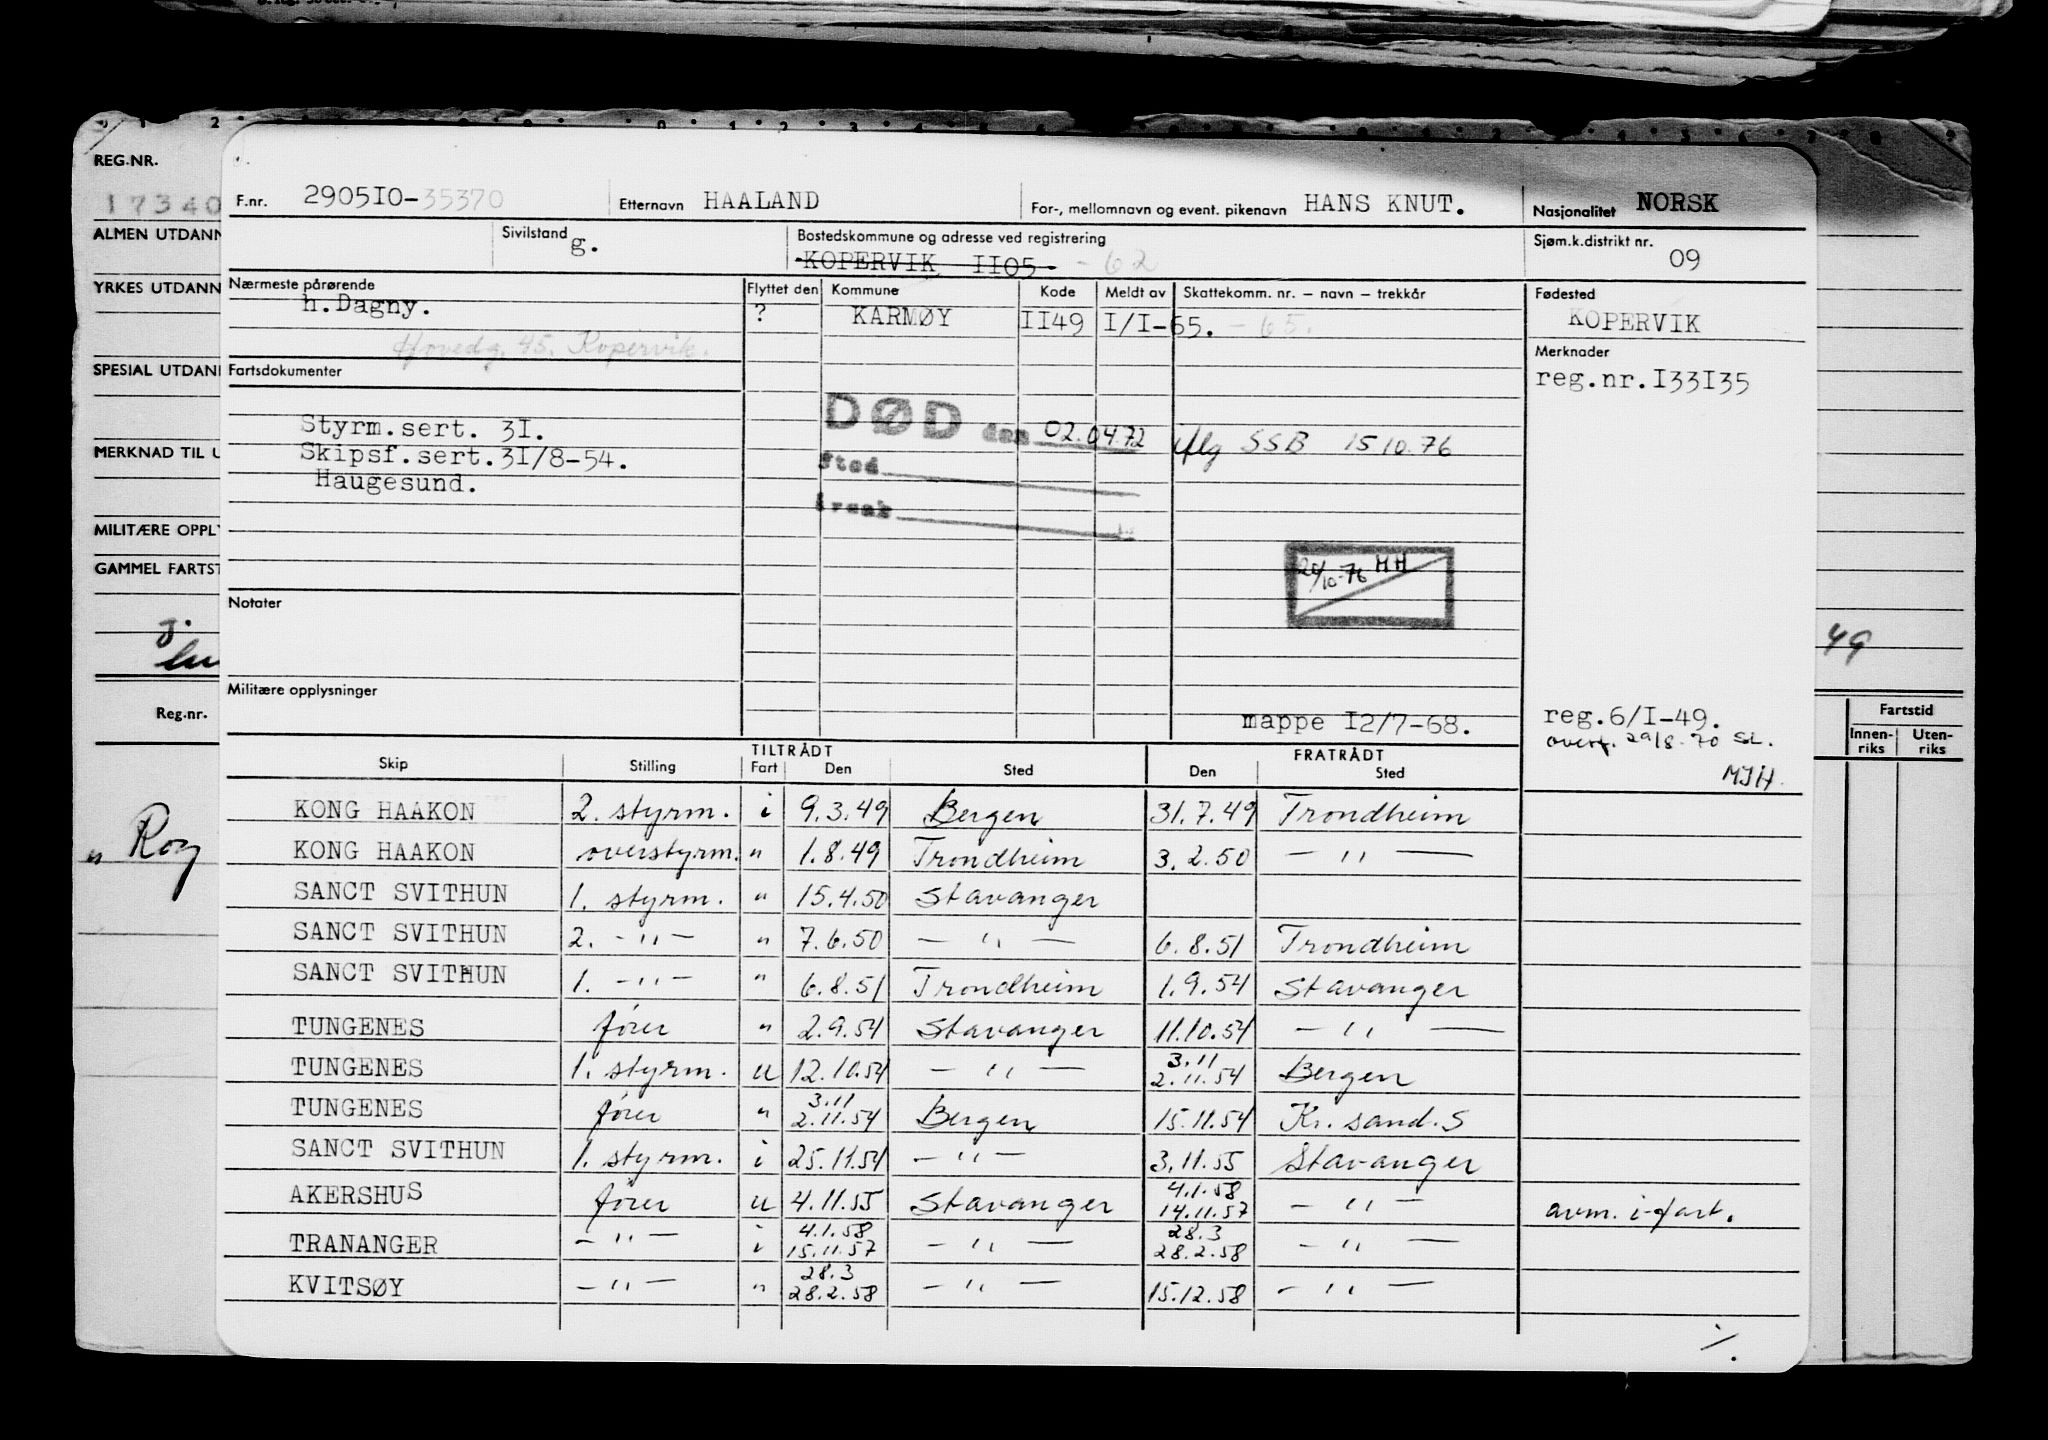 REG.NR.
17340
ALMEN UTDANN
YRKES UTDANN
SPESIAL UTDANN
MERKNAD TIL U
MILITÆRE OPPLY
GAMMEL FARTST
Reg.nr.
" Rog
49
Fartstid
Innen-riks Uten-riks
F.nr. 2905I0-35370 Etternavn HAALAND For-, mellomnavn og event. pikenavn HANS KNUT. Nasjonalitet NORSK
Sivilstand g. Bostedskommune og adresse ved registrering Sjøm.k.distrikt nr. 09
KOPERVIK II05 -62
Nærmeste pårørende Flyttet den Kommune Kode Meldt av Skattekomm. nr. – navn – trekkår Fødested
h.Dagny. ? KARMØY II49 I/I-65. -65. KOPERVIK
Hovedg. 45. Kopervik.
Fartsdokumenter Merknader
reg.nr.I33I35
Styrm.sert. 3I. DØD den 02.04.72 iflg SSB 15 10.76
Skipsf.sert.3I/8-54. Sted
Haugesund.
årsak
20/10-76 HH
Notater
Militære opplysninger
mappe I2/7-68. reg.6/I-49.
overf. 29/8-70 SL.
MJH.
TILTRÅDT FRATRÅDT
Skip Stilling Fart Den Sted Den Sted
KONG HAAKON 2. styrm. i 9.3.49 Bergen 31.7.49 Trondheim
KONG HAAKON overstyrm. " 1.8.49 Trondheim 3.2.50 — " —
SANCT SVITHUN 1. styrm. " 15.4.50 Stavanger
SANCT SVITHUN 2. -"- " 7.6.50 — " — 6.8.51 Trondheim
SANCT SVITHUN 1. -"- " 6.8.51 Trondheim 1.9.54 Stavanger
TUNGENES fører " 2.9.54 Stavanger 11.10.54 — " —
TUNGENES 1. styrm. u 12.10.54 — " — 3.11 2.11.54 Bergen
TUNGENES fører " 3.11 2.11.54 Bergen 15.11.54 Kr. sand. S
SANCT SVITHUN 1. styrm. i 25.11.54 — " — 3.11.55 Stavanger
AKERSHUS fører u 4.11.55 Stavanger 4.1.58 14.11.57 — " — avm. i-fart.
TRANANGER — " — i 4.1.58 15.11.57 — " — 28.3 28.2.58 — " —
KVITSØY — " — " 28.3 28.2.58 — " — 15.12.58 — " —
./.